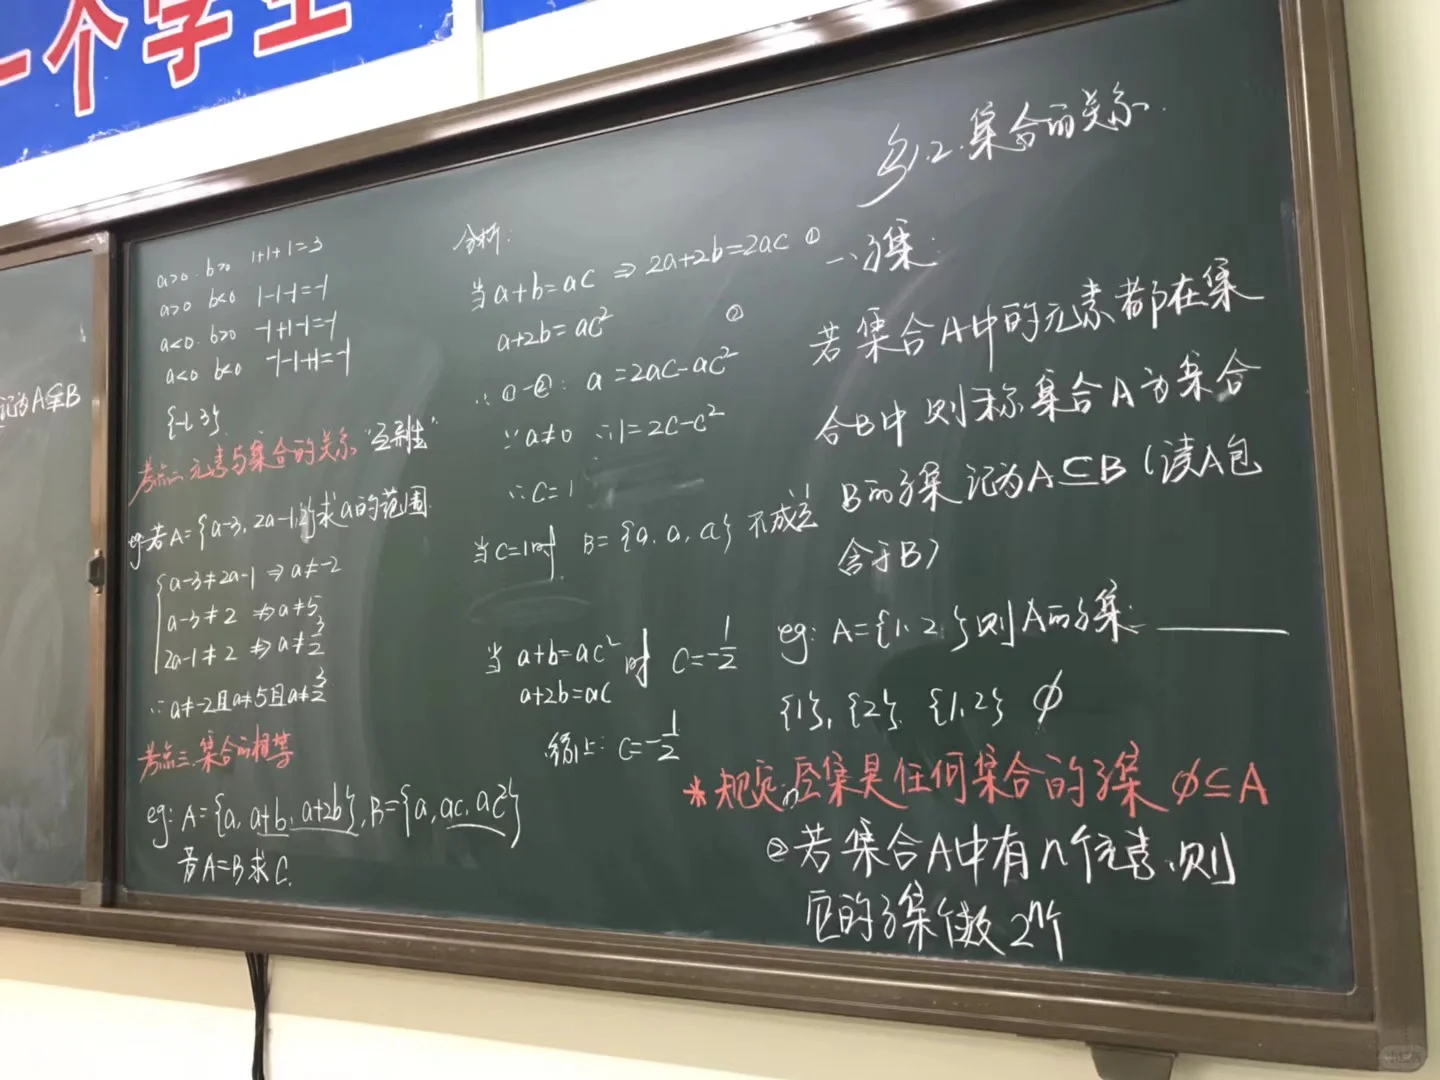 一个学生
记为A⊊B
a>0. b>0 1+1+1=3
a>0 b<0 1-1-1=-1
a<0. b>0 -1+1-1=-1
a<0 b<0 -1-1+1=-1
{-1, 3}.
考点二. 元素与集合的关系 "互异性"
eg: 若A={a-3, 2a-1, 2}求a的范围.
a-3≠2a-1 ⇒ a≠-2
a-3≠2 ⇒ a≠5
2a-1≠2 ⇒ a≠3/2
∴a≠-2且a≠5且a≠3/2
考点三. 集合的相等
eg: A={a, a+b, a+2b}, B={a, ac, ac²}
若A=B求C.
分析:
当a+b=ac ⇒ 2a+2b=2ac ①
a+2b=ac² ②
∴①-②: a=2ac-ac²
∵a≠0 ∴1=2c-c²
∴C=1
当C=1时 B={a, a, a}不成立
当 a+b=ac² 时 C=-1/2
a+2b=ac
综上: C=-1/2
§1.2. 集合的关系.
一、子集:
若集合A中的元素都在集
合B中则称集合A为集合
B的子集 记为A⊆B (读A包
含于B)
eg: A={1, 2}则A的子集:
{1}, {2}. {1, 2} ∅
*规定:①空集是任何集合的子集 ∅⊆A
②若集合A中有n个元素, 则
它的子集个数2ⁿ个